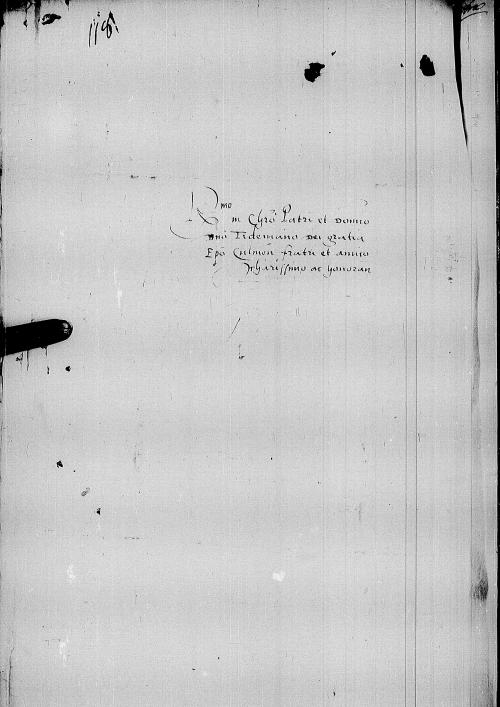 R mo
in Chro Patri et Domino
Dno Tidemano Dei gratia
Epo Culmen fratri et amico
charissimo ac honoran